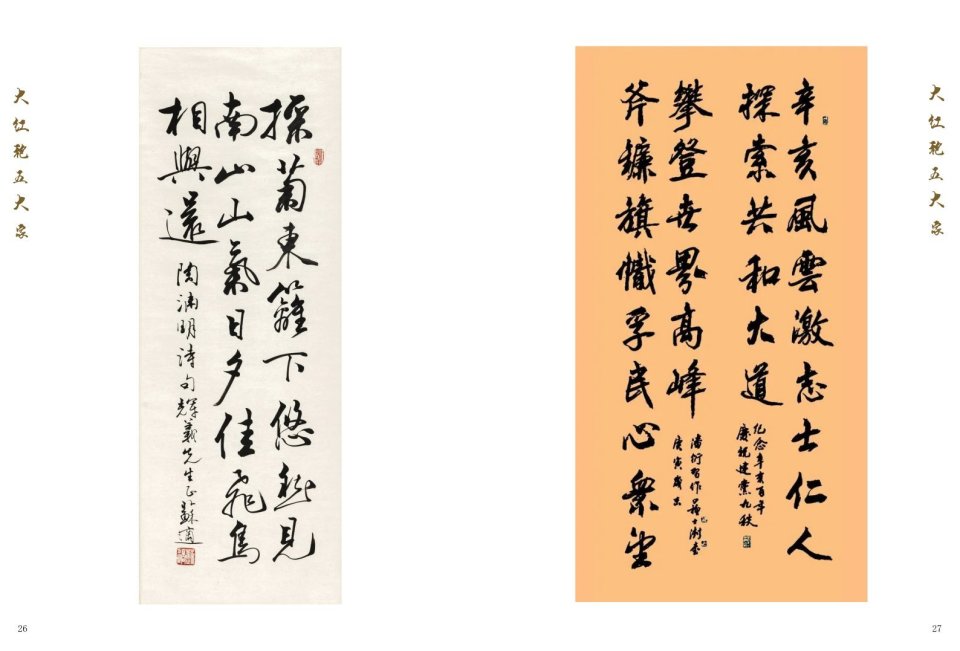 大红袍五大家
採菊東籬下悠然見
南山山氣日夕佳飛鳥
相與還
陶淵明詩句輝義先生正蘇適
26
大红袍五大家
辛亥風雲激志士仁人
探索共和大道
纪念辛亥百年
慶祝建黨九秩
攀登世界高峰
斧鐮旗幟孚民心衆望
潘衍習作
庚寅歲末
27